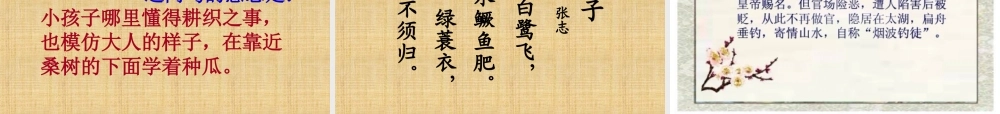 小孩子哪里懂得耕织之事，
也模仿大人的样子，在靠近
桑树的下面学着种瓜。
子
张志
白鹭飞，
鳜鱼肥。
绿蓑衣，
不须归。
皇帝赐名。但官场险恶，遭人陷害后被
贬，从此不再做官，隐居在太湖，扁舟
垂钓，寄情山水，自称“烟波钓徒”。